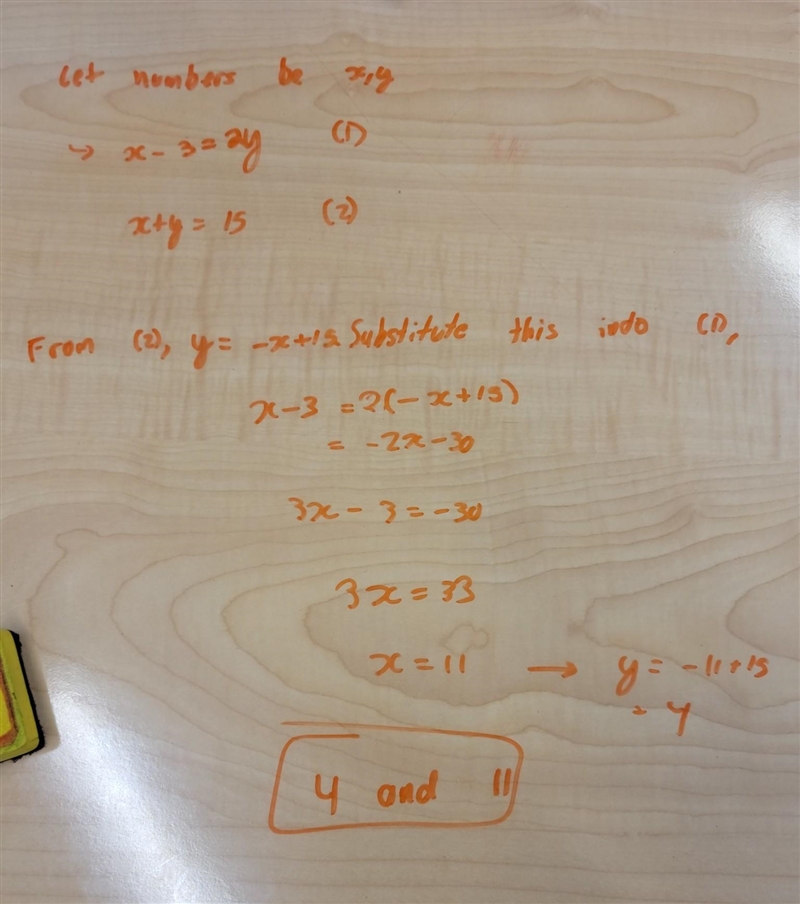 Let numbers be x,y
→ x - 3 = 2y (1)
x+y = 15 (2)
From (2), y = -x+15. Substitute this into (1),
x-3 = 2(-x+15)
= -2x-30
3x - 3 = -30
3x = 33
x = 11 → y = -11+15
= 4
4 and 11